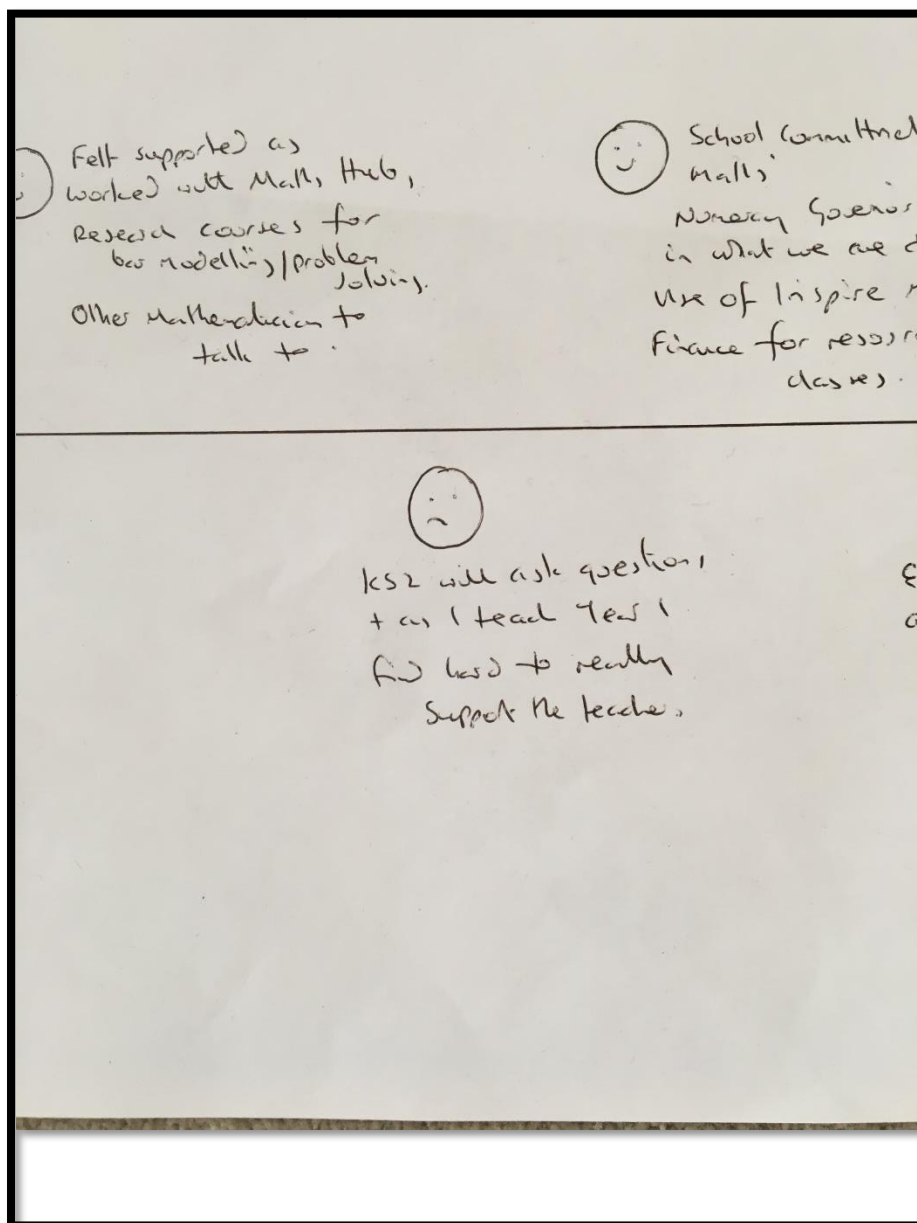 Felt supported as
worked with Maths Hub,
Research courses for
bar modelling/problem
solving.
Other Mathematician to
talk to.
School committed
Maths
Numeracy Governor
in what we are
Use of Inspire
Finance for
classes.
KS2 will ask questions,
+ as I teach Year 1
find hard to really
support the teacher.